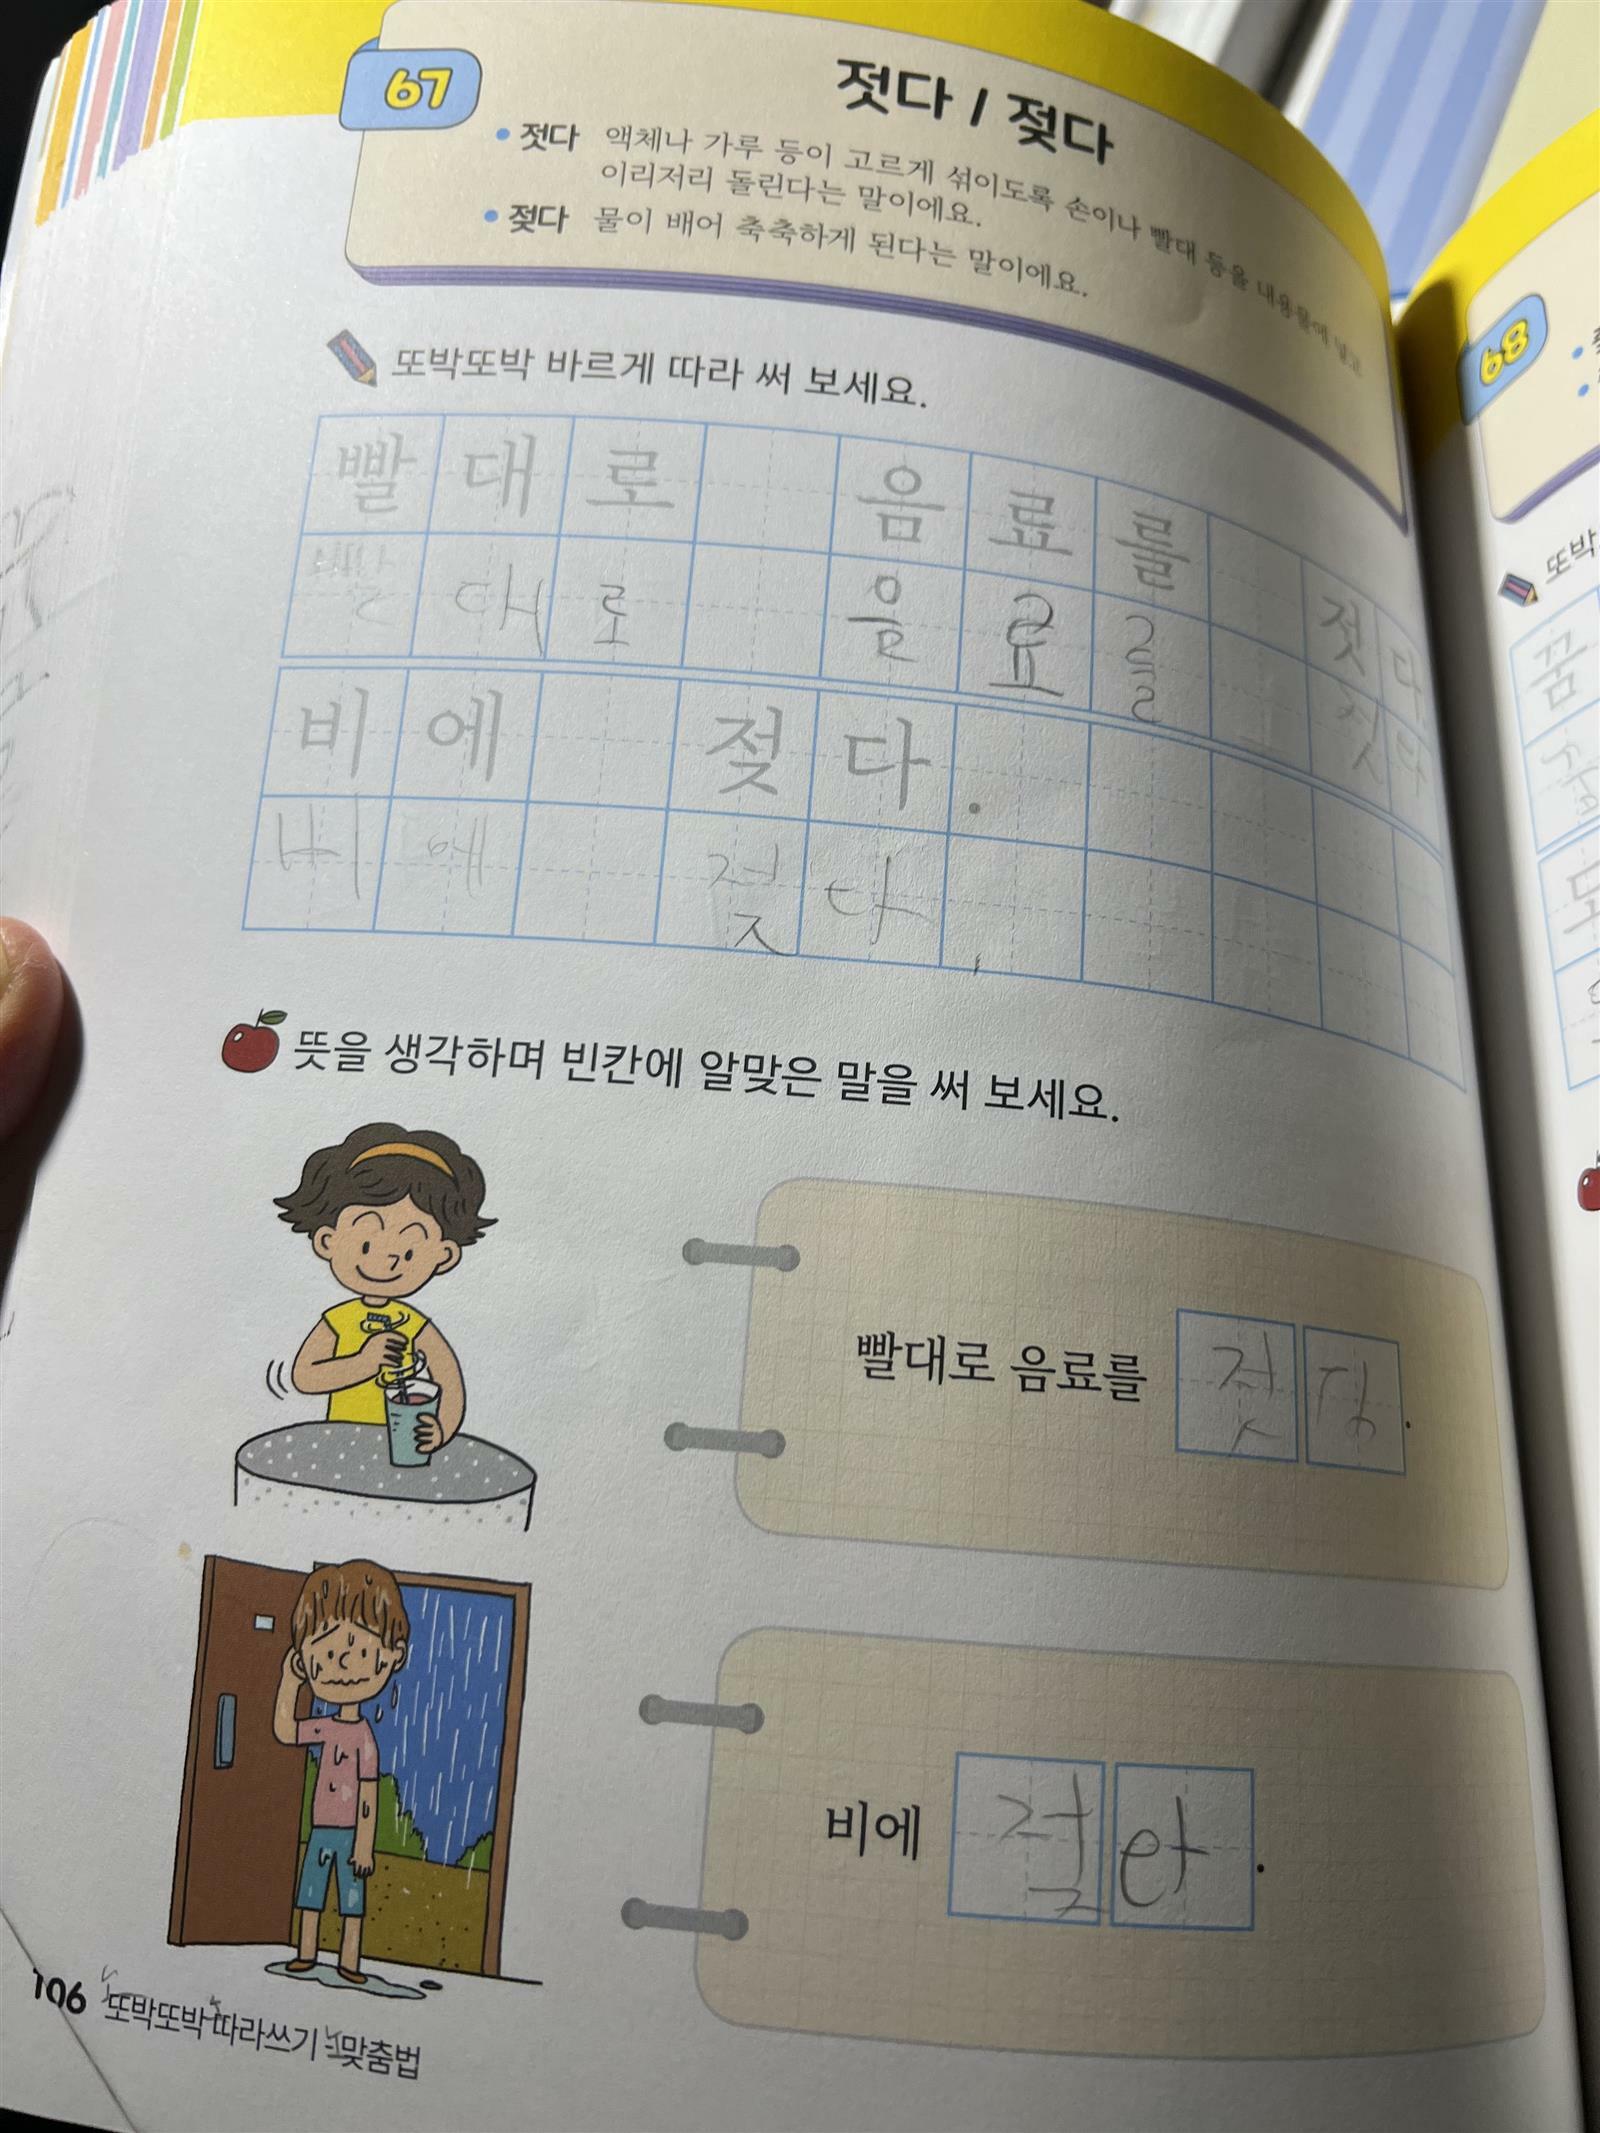 67
젓다 / 젖다
• 젓다 액체나 가루 등이 고르게 섞이도록 손이나 빨대 등을 내용물에 넣고
이리저리 돌린다는 말이에요.
• 젖다 물이 배어 축축하게 된다는 말이에요.
또박또박 바르게 따라 써 보세요.
빨대로 음료를 젓다.
빨대로 을료를 젓다
비에 젖다.
비에 젖다.
뜻을 생각하며 빈칸에 알맞은 말을 써 보세요.
빨대로 음료를 젓다.
비에 젖다.
106 또박또박 따라쓰기 맞춤법
68
또박
꿈